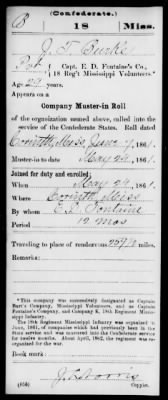 (Confederate.)
B 18 Miss.
J. T. Burke
Pvt., Capt. E. D. Fontaine's Co.,
18 Reg't Mississippi Volunteers.*
Age 29 years.
Appears on a
Company Muster-in Roll
of the organization named above, called into the
service of the Confederate States. Roll dated
Corinth, Miss, June 7, 1861.
Muster-in to date May 24, 1861.
Joined for duty and enrolled:
When May 24, 1861.
Where Corinth Miss
By whom E. D. Fontaine
Period 12 mos
Traveling to place of rendezvous 259½ miles.
Remarks:
*This company was successively designated as Captain
Burt's Company, Mississippi Volunteers, and as Captain
Fontaine's Company, and Company K, 18th Regiment Mississippi
Infantry.
The 18th Regiment Mississippi Infantry was organized in
June, 1861, of companies which had previously been in state
service and was mustered into the Confederate service
for twelve months. About April, 1862, the regiment was reorganized
for the war.
Book mark:
(656)
Copyist.